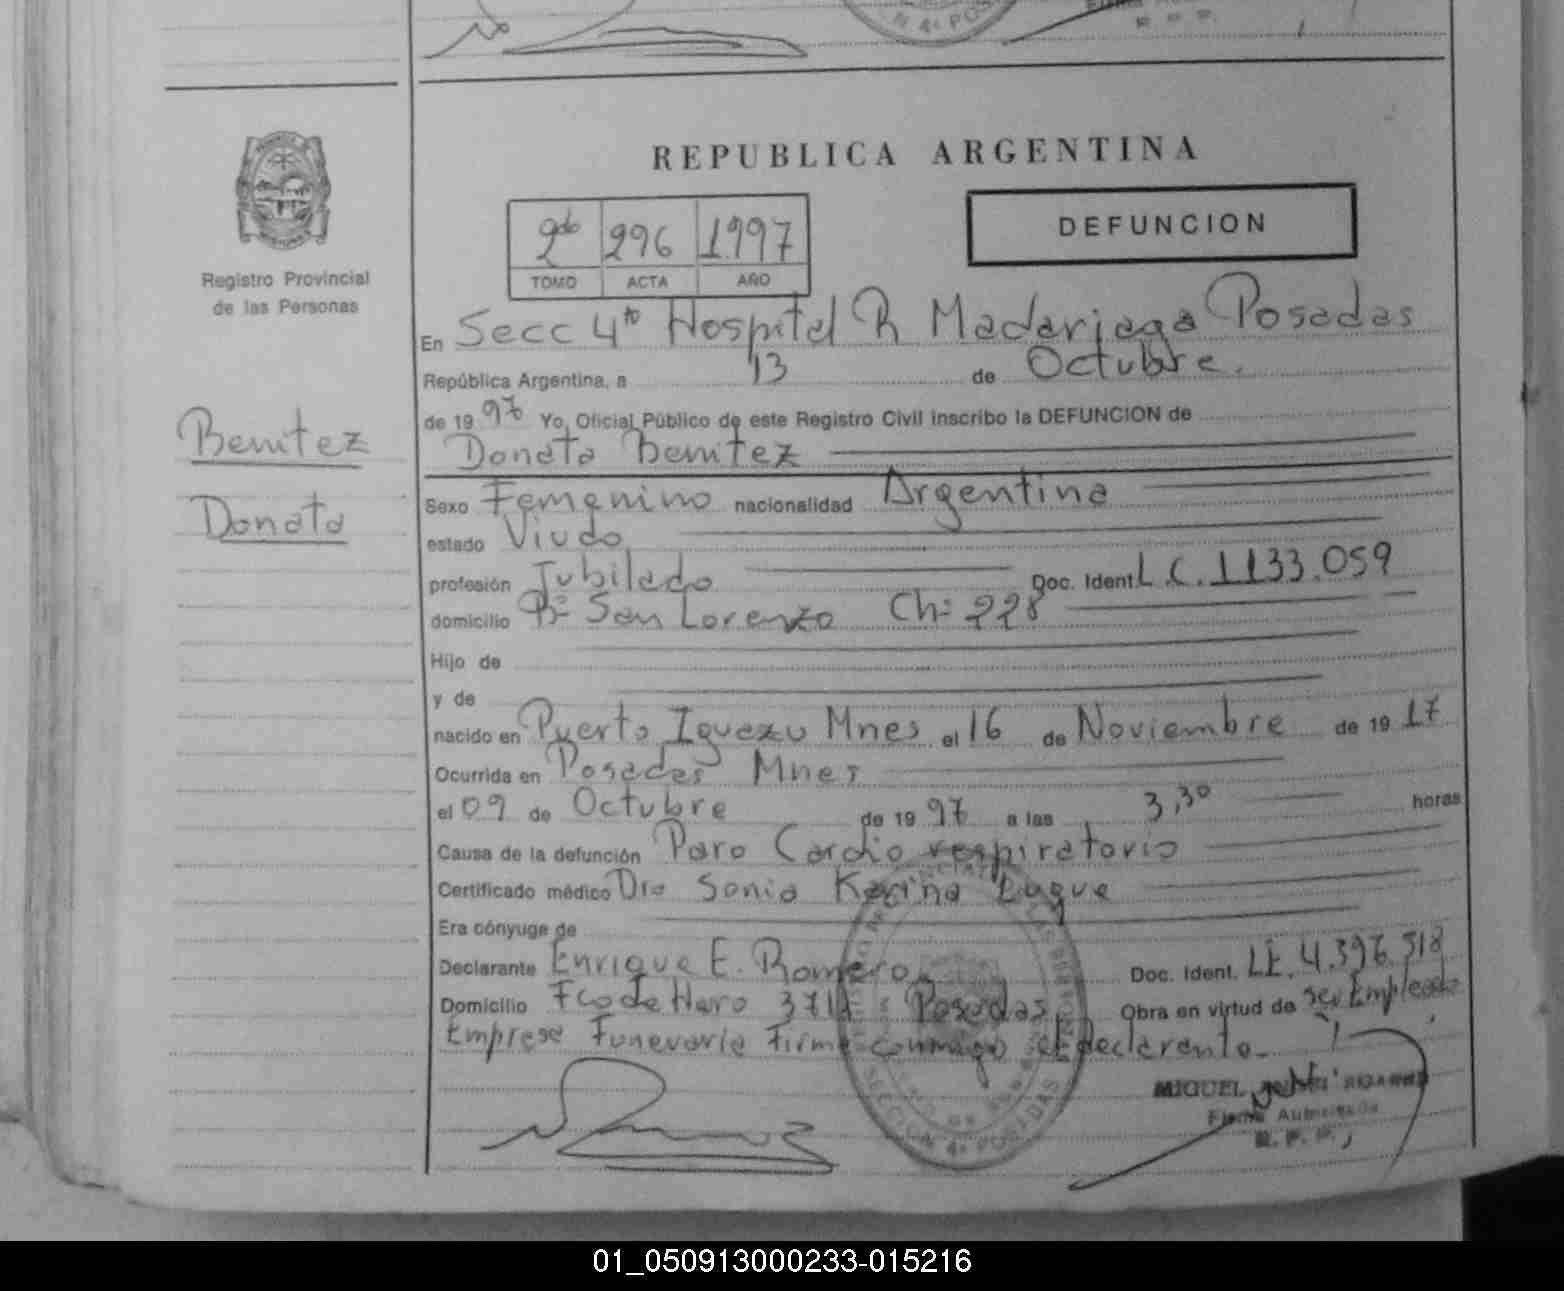 REPUBLICA ARGENTINA
2do 296 1997
TOMO ACTA AÑO
DEFUNCION
Registro Provincial
de las Personas
Benitez
Donata
En Secc 4to Hospital R Madariaga Posadas
República Argentina, a 13 de Octubre.
de 19 97 Yo, Oficial Público de este Registro Civil inscribo la DEFUNCION de
Donata Benitez
Sexo Femenino nacionalidad Argentina
estado Viudo
profesión Jubilado Doc. Ident. L.C. 1133.059
domicilio Bº San Lorenzo Ch: 228
Hijo de
y de
nacido en Puerto Iguazu Mnes el 16 de Noviembre de 19 17
Ocurrida en Posadas Mnes
el 09 de Octubre de 19 97 a las 3,30 horas
Causa de la defunción Paro Cardio respiratorio
Certificado médico Dra Sonia Karina Luque
Era cónyuge de
Declarante Enrique E. Romero Doc. Ident. L.E. 4.396.518
Domicilio Fco de Haro Posadas Obra en virtud de ser Empleado
Empresa Funeraria Firma conmigo el declarante.
SECCION 4ª POSADAS
MIGUEL
Firma Autorizada
R. P. P.
01_050913000233-015216